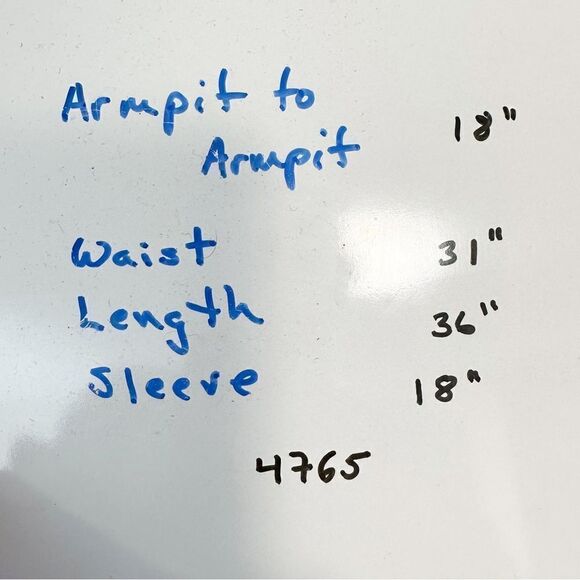 Armpit to
Armpit 18"
Waist 31"
Length 36"
Sleeve 18"
4765